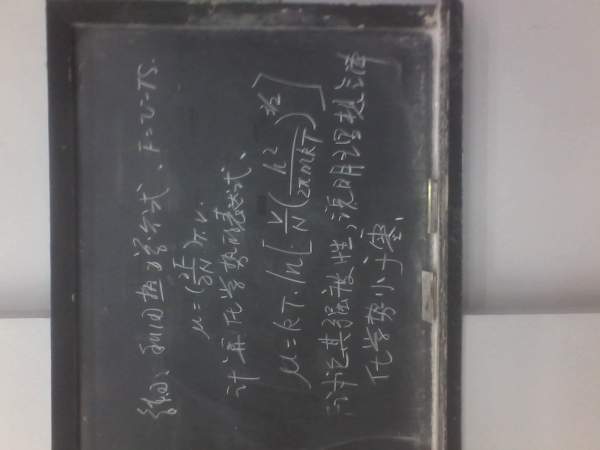 例1、利用热力学公式、F=U-TS.
μ=(∂F/∂N)T.V.
计算化学势的表达式、
μ=kT.ln[V/N(h²/2πmkT)^3/2]
讨论其强度性，说明理想气体
化学势小于零、